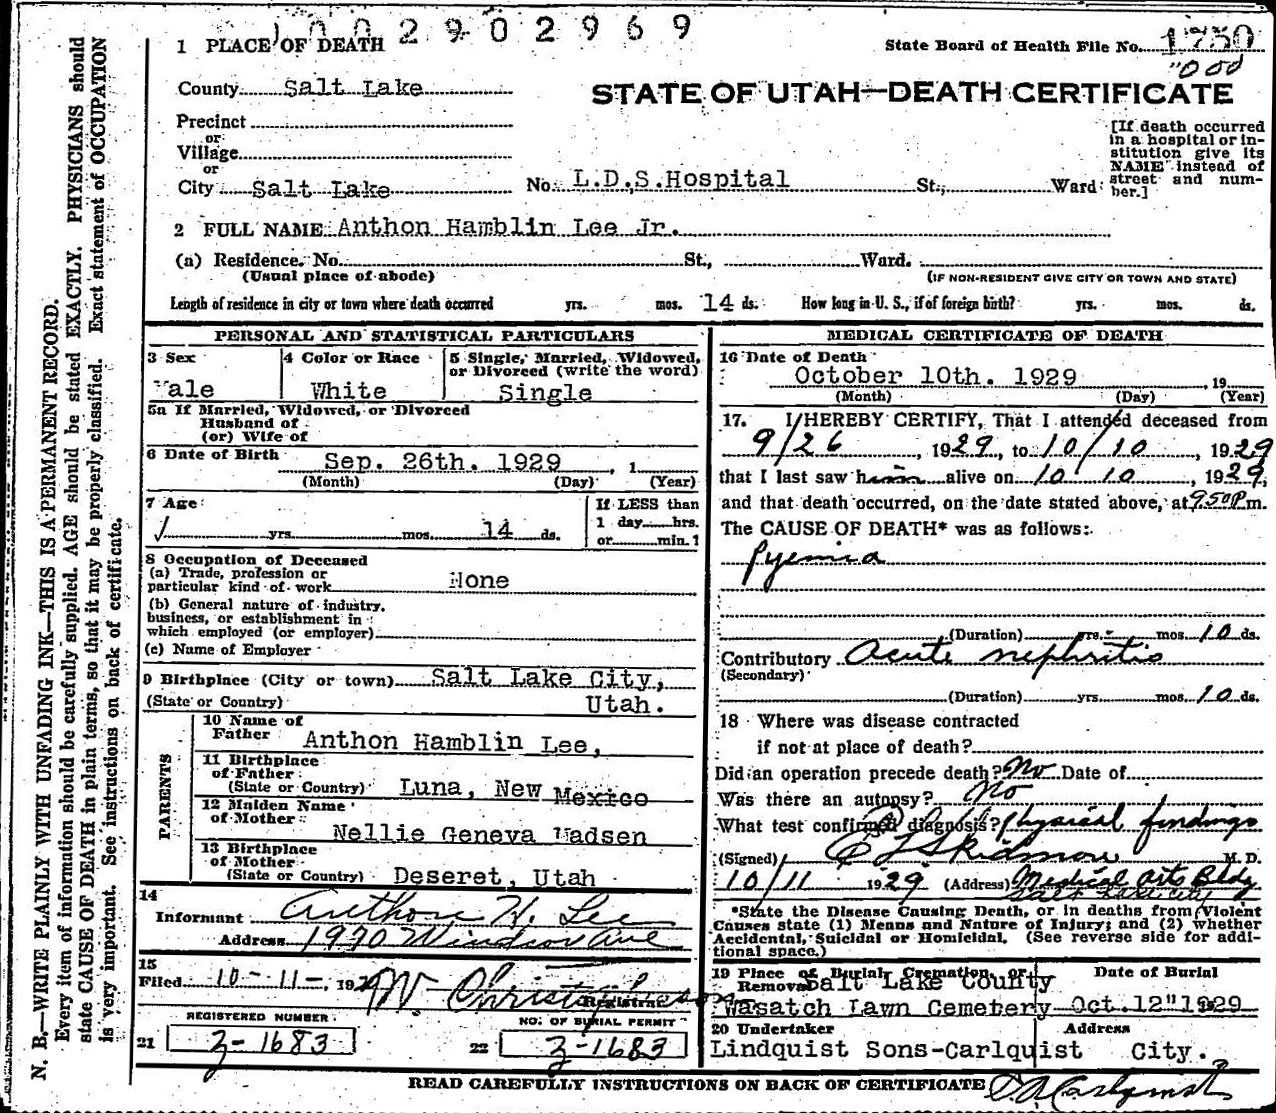 1002902969
1 PLACE OF DEATH
State Board of Health File No. 1750
County Salt Lake
STATE OF UTAH—DEATH CERTIFICATE
Precinct
or
Village
or
City Salt Lake No. L.D.S. Hospital St., Ward
[If death occurred
in a hospital or in-
stitution give its
NAME instead of
street and num-
ber.]
2 FULL NAME Anthon Hamblin Lee Jr.
(a) Residence. No. St., Ward.
(Usual place of abode) (IF NON-RESIDENT GIVE CITY OR TOWN AND STATE)
Length of residence in city or town where death occurred yrs. mos. 14 ds. How long in U. S., if of foreign birth? yrs. mos. ds.
PERSONAL AND STATISTICAL PARTICULARS
3 Sex
Male
4 Color or Race
White
5 Single, Married, Widowed,
or Divorced (write the word)
Single
5a If Married, Widowed, or Divorced
Husband of
(or) Wife of
6 Date of Birth Sep. 26th. 1929, 1
(Month) (Day) (Year)
7 Age
yrs. mos. 14 ds.
If LESS than
1 day hrs.
or min. ?
8 Occupation of Deceased
(a) Trade, profession or
particular kind of work None
(b) General nature of industry,
business, or establishment in
which employed (or employer)
(c) Name of Employer
9 Birthplace (City or town) Salt Lake City,
(State or Country) Utah.
PARENTS
10 Name of
Father Anthon Hamblin Lee,
11 Birthplace
of Father
(State or Country) Luna, New Mexico
12 Maiden Name
of Mother
Nellie Geneva Madsen
13 Birthplace
of Mother
(State or Country) Deseret, Utah
14
Informant Anthon H. Lee
Address 1970 Windsor Ave
15
Filed 10-11-, 1929 W. Christopherson
Registrar
REGISTERED NUMBER
21 3-1683
NO. OF BURIAL PERMIT
22 3-1683
MEDICAL CERTIFICATE OF DEATH
16 Date of Death
October 10th. 1929, 19
(Month) (Day) (Year)
17. I HEREBY CERTIFY, That I attended deceased from
9/26, 1929, to 10/10, 1929
that I last saw him alive on 10 10, 1929,
and that death occurred, on the date stated above, at 9:50 P.m.
The CAUSE OF DEATH* was as follows:
Pyemia
(Duration) yrs. mos. 10 ds.
Contributory Acute nephritis
(Secondary)
(Duration) yrs. mos. 10 ds.
18 Where was disease contracted
if not at place of death?
Did an operation precede death? No Date of
Was there an autopsy? No
What test confirmed diagnosis? Physical findings
(Signed) C L Skidmore M. D.
10/11 1929 (Address) Medical Arts Bldg
Salt Lake City
*State the Disease Causing Death, or in deaths from Violent
Causes state (1) Means and Nature of Injury; and (2) whether
Accidental, Suicidal or Homicidal. (See reverse side for addi-
tional space.)
19 Place of Burial, Cremation, or
Removal Salt Lake County
Date of Burial
Wasatch Lawn Cemetery Oct. 12" 1929
20 Undertaker Address
Lindquist Sons-Carlquist City.
READ CAREFULLY INSTRUCTIONS ON BACK OF CERTIFICATE
N. B.—WRITE PLAINLY WITH UNFADING INK—THIS IS A PERMANENT RECORD.
Every item of information should be carefully supplied. AGE should be stated EXACTLY. PHYSICIANS should
state CAUSE OF DEATH in plain terms, so that it may be properly classified. Exact statement of OCCUPATION
is very important. See instructions on back of certificate.